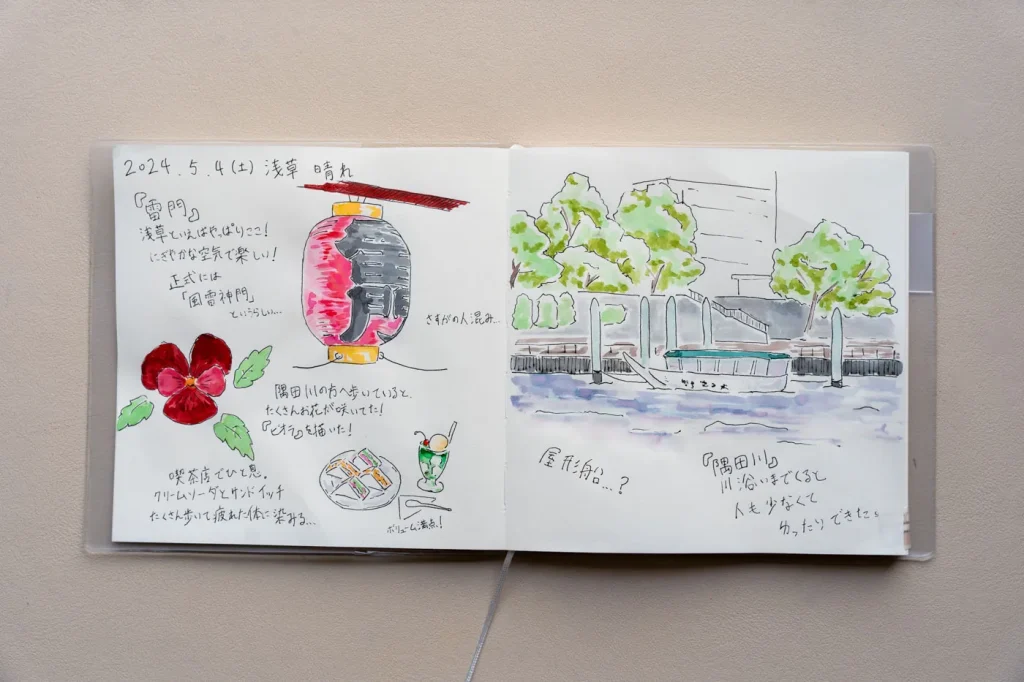 2024.5.4(土) 浅草 晴れ
『雷門』
浅草といえばやっぱりここ!
にぎやかな空気で楽しい!
正式には
「風雷神門」
というらしい…
さすがの人混み…
隅田川の方へ歩いていると
たくさんお花が咲いてた!
『ビオラ』を描いた!
喫茶店でひと息。
クリームソーダとサンドイッチ
たくさん歩いて疲れた体に染みる…
ボリューム満点!
屋形船…?
『隅田川』
川沿いまでくると
人も少なくて
ゆったりできた。